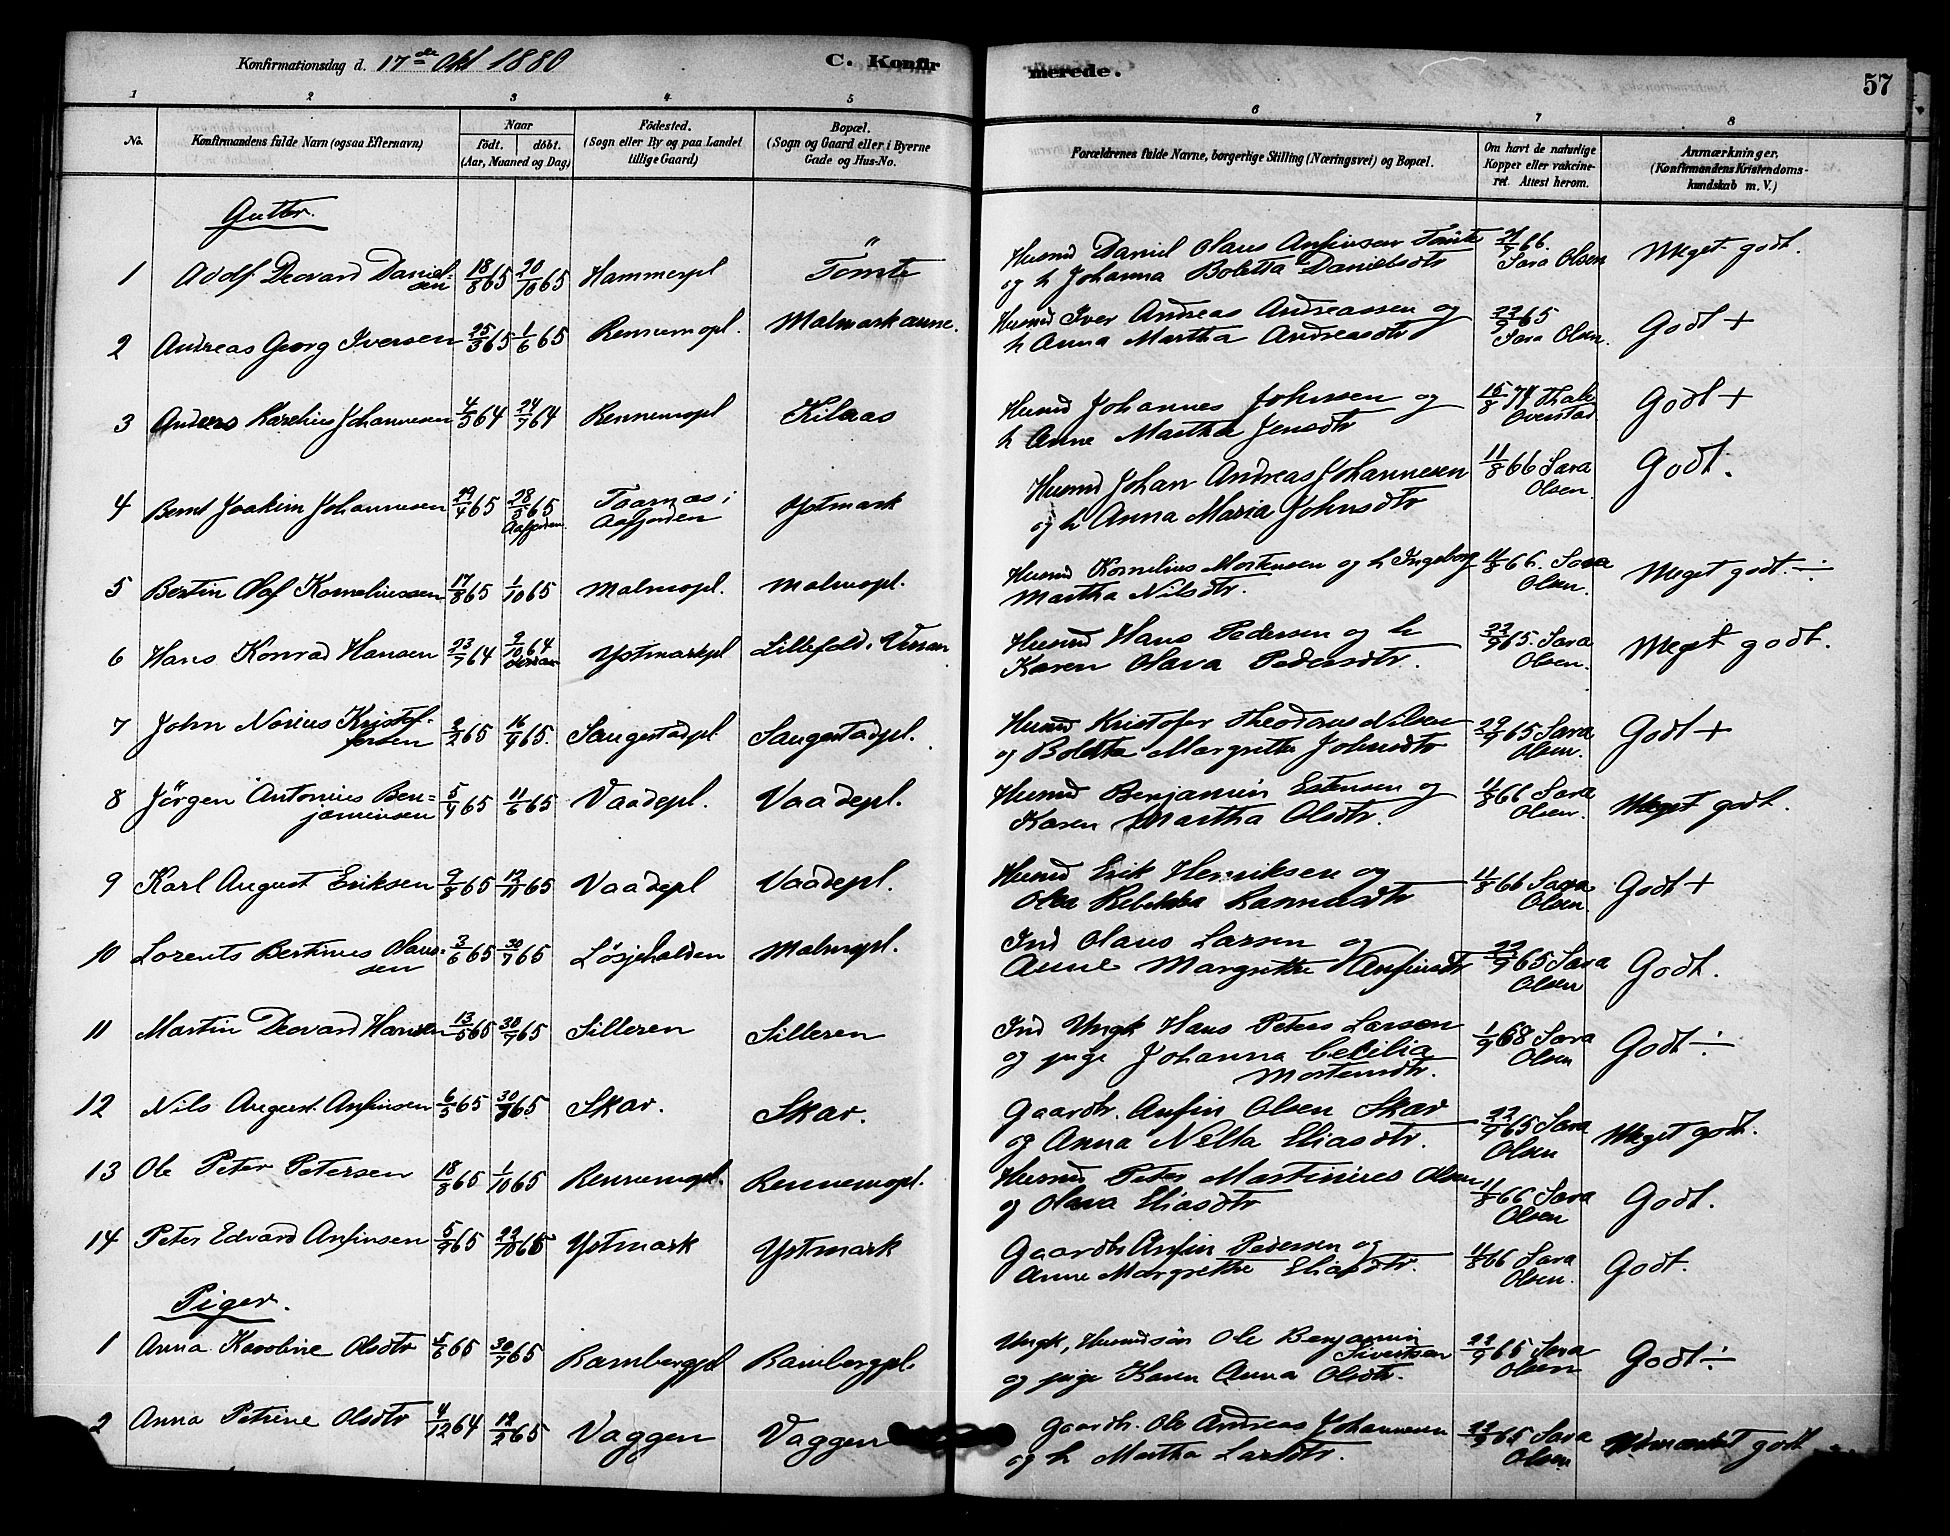 Konfirmationsdag d. 17de Okt 1880
C. Konfirmerede.
57
1 2 3 4 5 6 7 8
No.
Konfirmandens fulde Navn (ogsaa Efternavn)
Naar
födt. döbt.
(Aar, Maaned og Dag)
Födested.
(Sogn eller By og paa Landet
tillige Gaard)
Bopæl.
(Sogn og Gaard eller i Byerne
Gade og Hus-No.
Forældrenes fulde Navne, borgerlige Stilling (Næringsvei) og Bopæl.
Om havt de naturlige
Kopper eller vakcineret. Attest herom.
Anmærkninger.
(Konfirmandens Kristendoms-
kundskab m. V.)
Gutter.
1 Adolf Deovard Danielsen 18/8 65 20/10 65 Hammerpl Tömte Husmd Daniel Olaus Anfinsen Tömte 21/9 66. Meget godt.
og h Johanna Boletta Danielsdtr Sara Olsen
2 Andreas Georg Iversen 25/3 65 1/6 65 Rennemspl. Malmarkaune. Husmd Iver Andreas Andreassen og 22/9 65 Godt +
h Anna Martha Andreasdtr Sara Olsen.
3 Anders Karelius Johannesen 4/5 64 24/7 64 Rennemspl Kilaas Husmd Johannes Johnsen og 15/8 74 Godt +
h Anne Martha Jensdtr Overstad
4 Bernt Joakim Johannesen 29/4 65 28/5 65 Aafjorden i Aafjorden Ystmark Husmd Johan Andreas Johannesen 11/8 66 Sara Godt.
og h Anna Maria Johnsdtr Olsen.
5 Bertin Olaf Korneliussen 17/8 65 1/10 65 Malmopl. Malmopl. Husmd Kornelius Mortensen og h Ingeborg 11/8 66. Sara Meget godt. ÷
Martha Nilsdtr. Olsen.
6 Hans Konrad Hansen 23/7 64 2/10 64 Verran Ystmarkpl Lillefold i Verran Husmd Hans Pedersen og h 22/9 65 Sara Meget godt.
Karen Olava Pedersdtr. Olsen.
7 John Norius Kristofersen 2/2 65 16/9 65. Saugestadpl Saugestadpl. Husmd Kristofer Theodorus Nilsen 29/9 65 Sara Godt +
og Boletta Margrethe Johnsdtr Olsen.
8 Jörgen Antonius Benjaminsen 5/4 65 11/6 65 Vaadepl. Vaadepl. Husmd Benjamin Estensen og 11/8 66 Sara Meget godt.
Karen Martha Olsdtr. Olsen.
9 Karl August Eriksen 9/8 65 12/11 65 Vaadepl Vaadepl. Husmd Erik Henriksen og 11/8 66 Sara Godt +
Olea Rebekka Olsen.
10 Lorents Bertinus Olaussen 3/6 65 30/7 65 Løsjehalden Malmopl. Ind Olaus Larsen og 22/9 65 Sara Godt.
Anne Margrethe Anfinsdtr Olsen
11 Martin Deovard Hansen 13/5 65 30/7 65 Silleren Silleren Ind Ungk Hans Peters Larsen 1/9 68 Sara Godt ÷
og pige Johanna Cecilia Olsen
Mortensdtr.
12 Nils August Anfinsen 6/5 65 30/7 65 Skar. Skar. Gaardbr. Anfin Olsen Skar 22/9 65 Sara Meget godt.
og Anna Nella Eliasdtr. Olsen
13 Ole Peter Petersen 18/8 65 1/10 65 Rennemspl. Rennemspl. Husmd Peter Martinius Olsen 11/8 66 Sara Godt.
og Olava Eliasdtr Olsen
14 Peter Edvard Anfinsen 5/9 65 22/10 65 Ystmark Ystmark Gaardbr Anfin Pedersen og 11/8 66 Sara Godt.
Anne Margrethe Eliasdtr. Olsen.
Piger.
1 Anna Karoline Olsdtr 5/6 65 30/7 65 Rambergpl Rambergpl. Ungk, Husmdsön Ole Benjamin 22/9 65 Sara Godt ÷
Sivertsen
og pige Karen Anna Olsdtr. Olsen
2 Anna Petrine Olsdtr 4/12 64 12/2 65 Vaggen Vaggen Gaardbr. Ole Andreas Johannesen 22/9 65 Sara Udmærket godt
og h Martha Larsdtr. Olsen